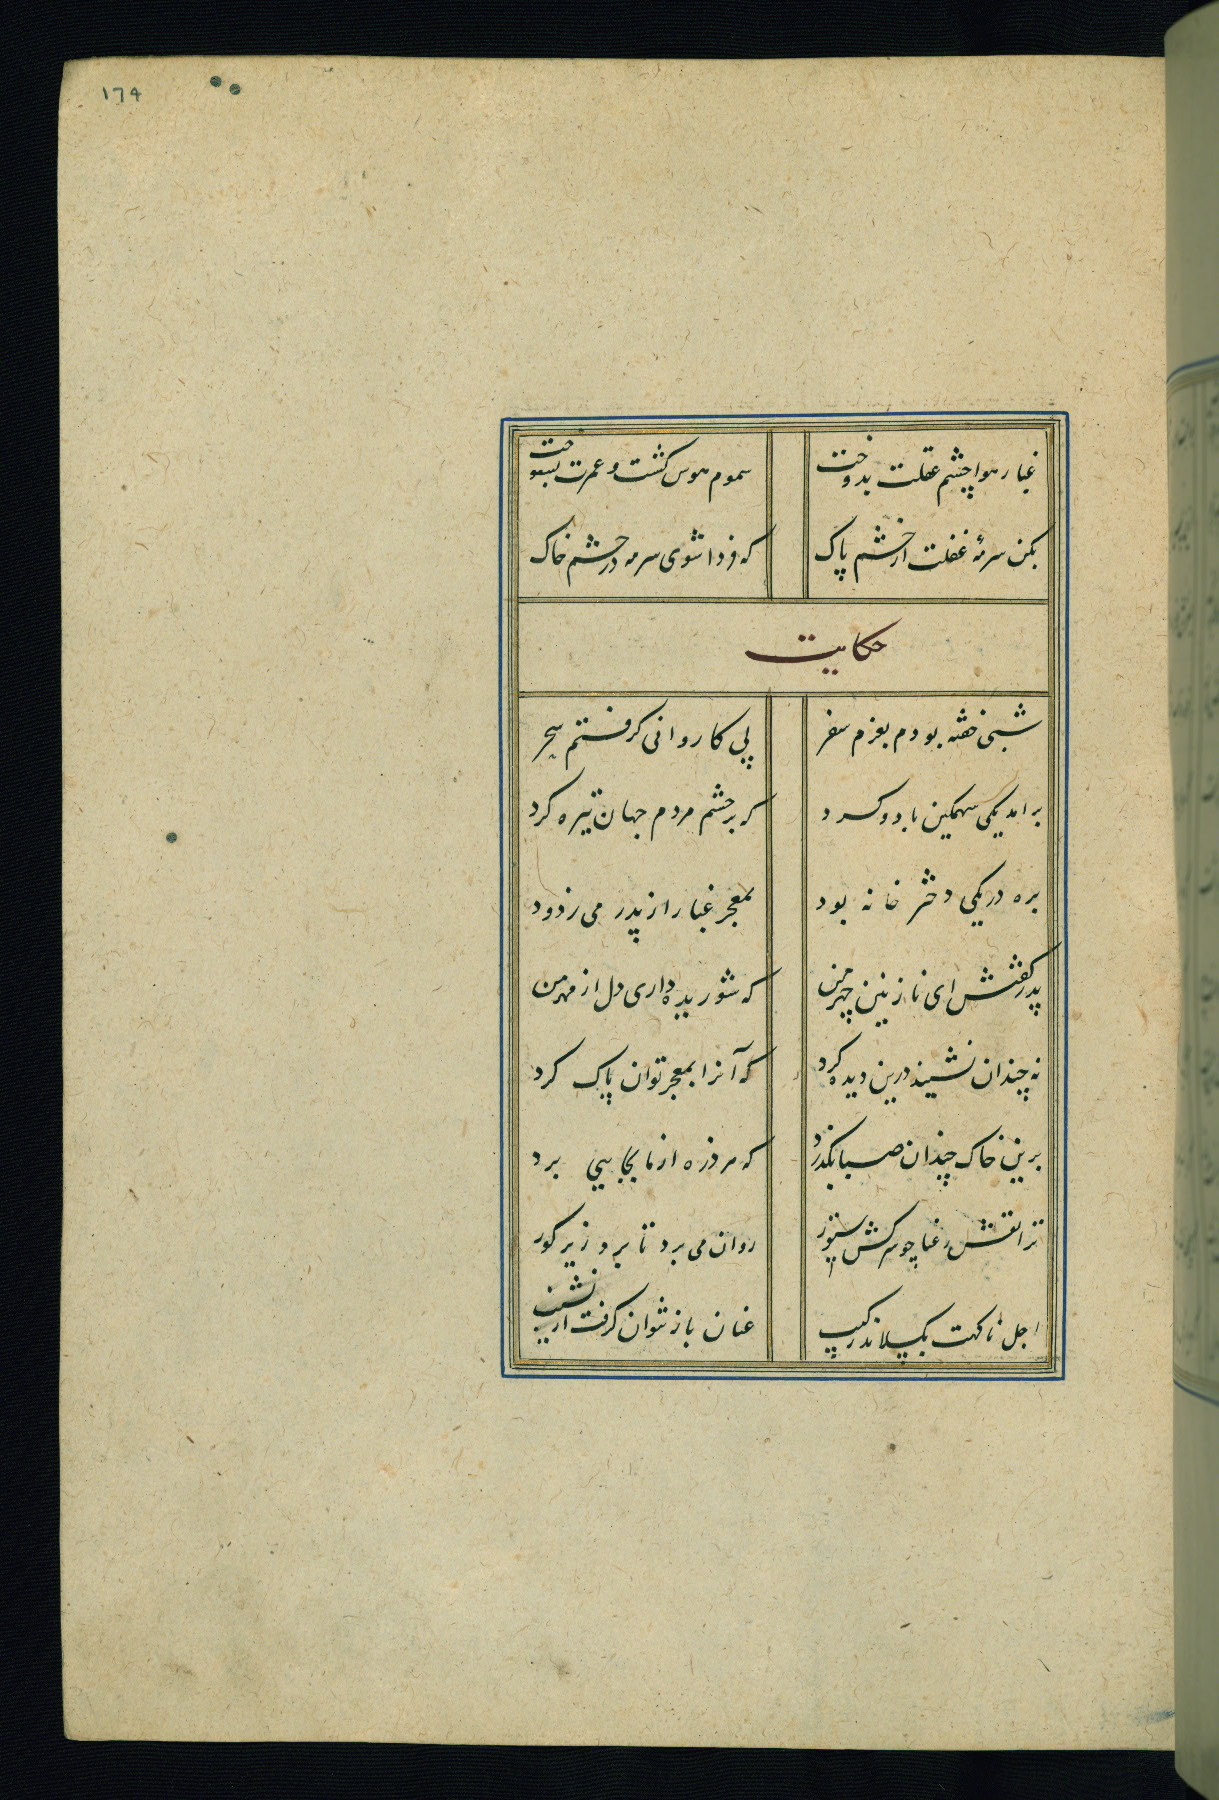 ۱۶۹
غبار هوا چشم عقلت بدوخت سموم هوس کشت و عمرت بسوخت
بکن سرمهٔ غفلت از چشم پاک که فردا شوی سرمه در چشم خاک
حکایت
شبی خفته بودم بعزم سفر پی کاروانی گرفتم سحر
برامد یکی سهمگین باد و گرد که بر چشم مردم جهان تیره کرد
بره در یکی دختر خانه بود بمعجر غبار از پدر می زدود
پدر گفتش ای نازنین چهر من که شوریده داری دل از مهر من
نه چندان نشیند درین دیده گرد که آنرا بمعجر توان پاک کرد
برین خاک چندان صبا بگذرد که هر ذره از ما بجایی برد
ترا نفس رعنا چو سرکش ستور روان می برد تا برد زیر گور
اجل ناکهت بگسلاند رکیب عنان باز نتوان گرفت از نشیب